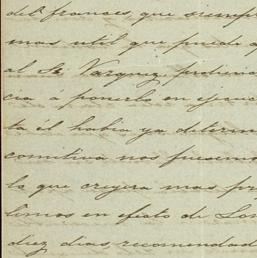 del frances, que siempr
mas util que puede
al Sr. Vazquez pudiera
cia á ponerlo en ejecu
ta él habia ya determ
comitiva nos presenta
lo que creyera mas pr
limos en efecto de Lon
diez dias, recomendad